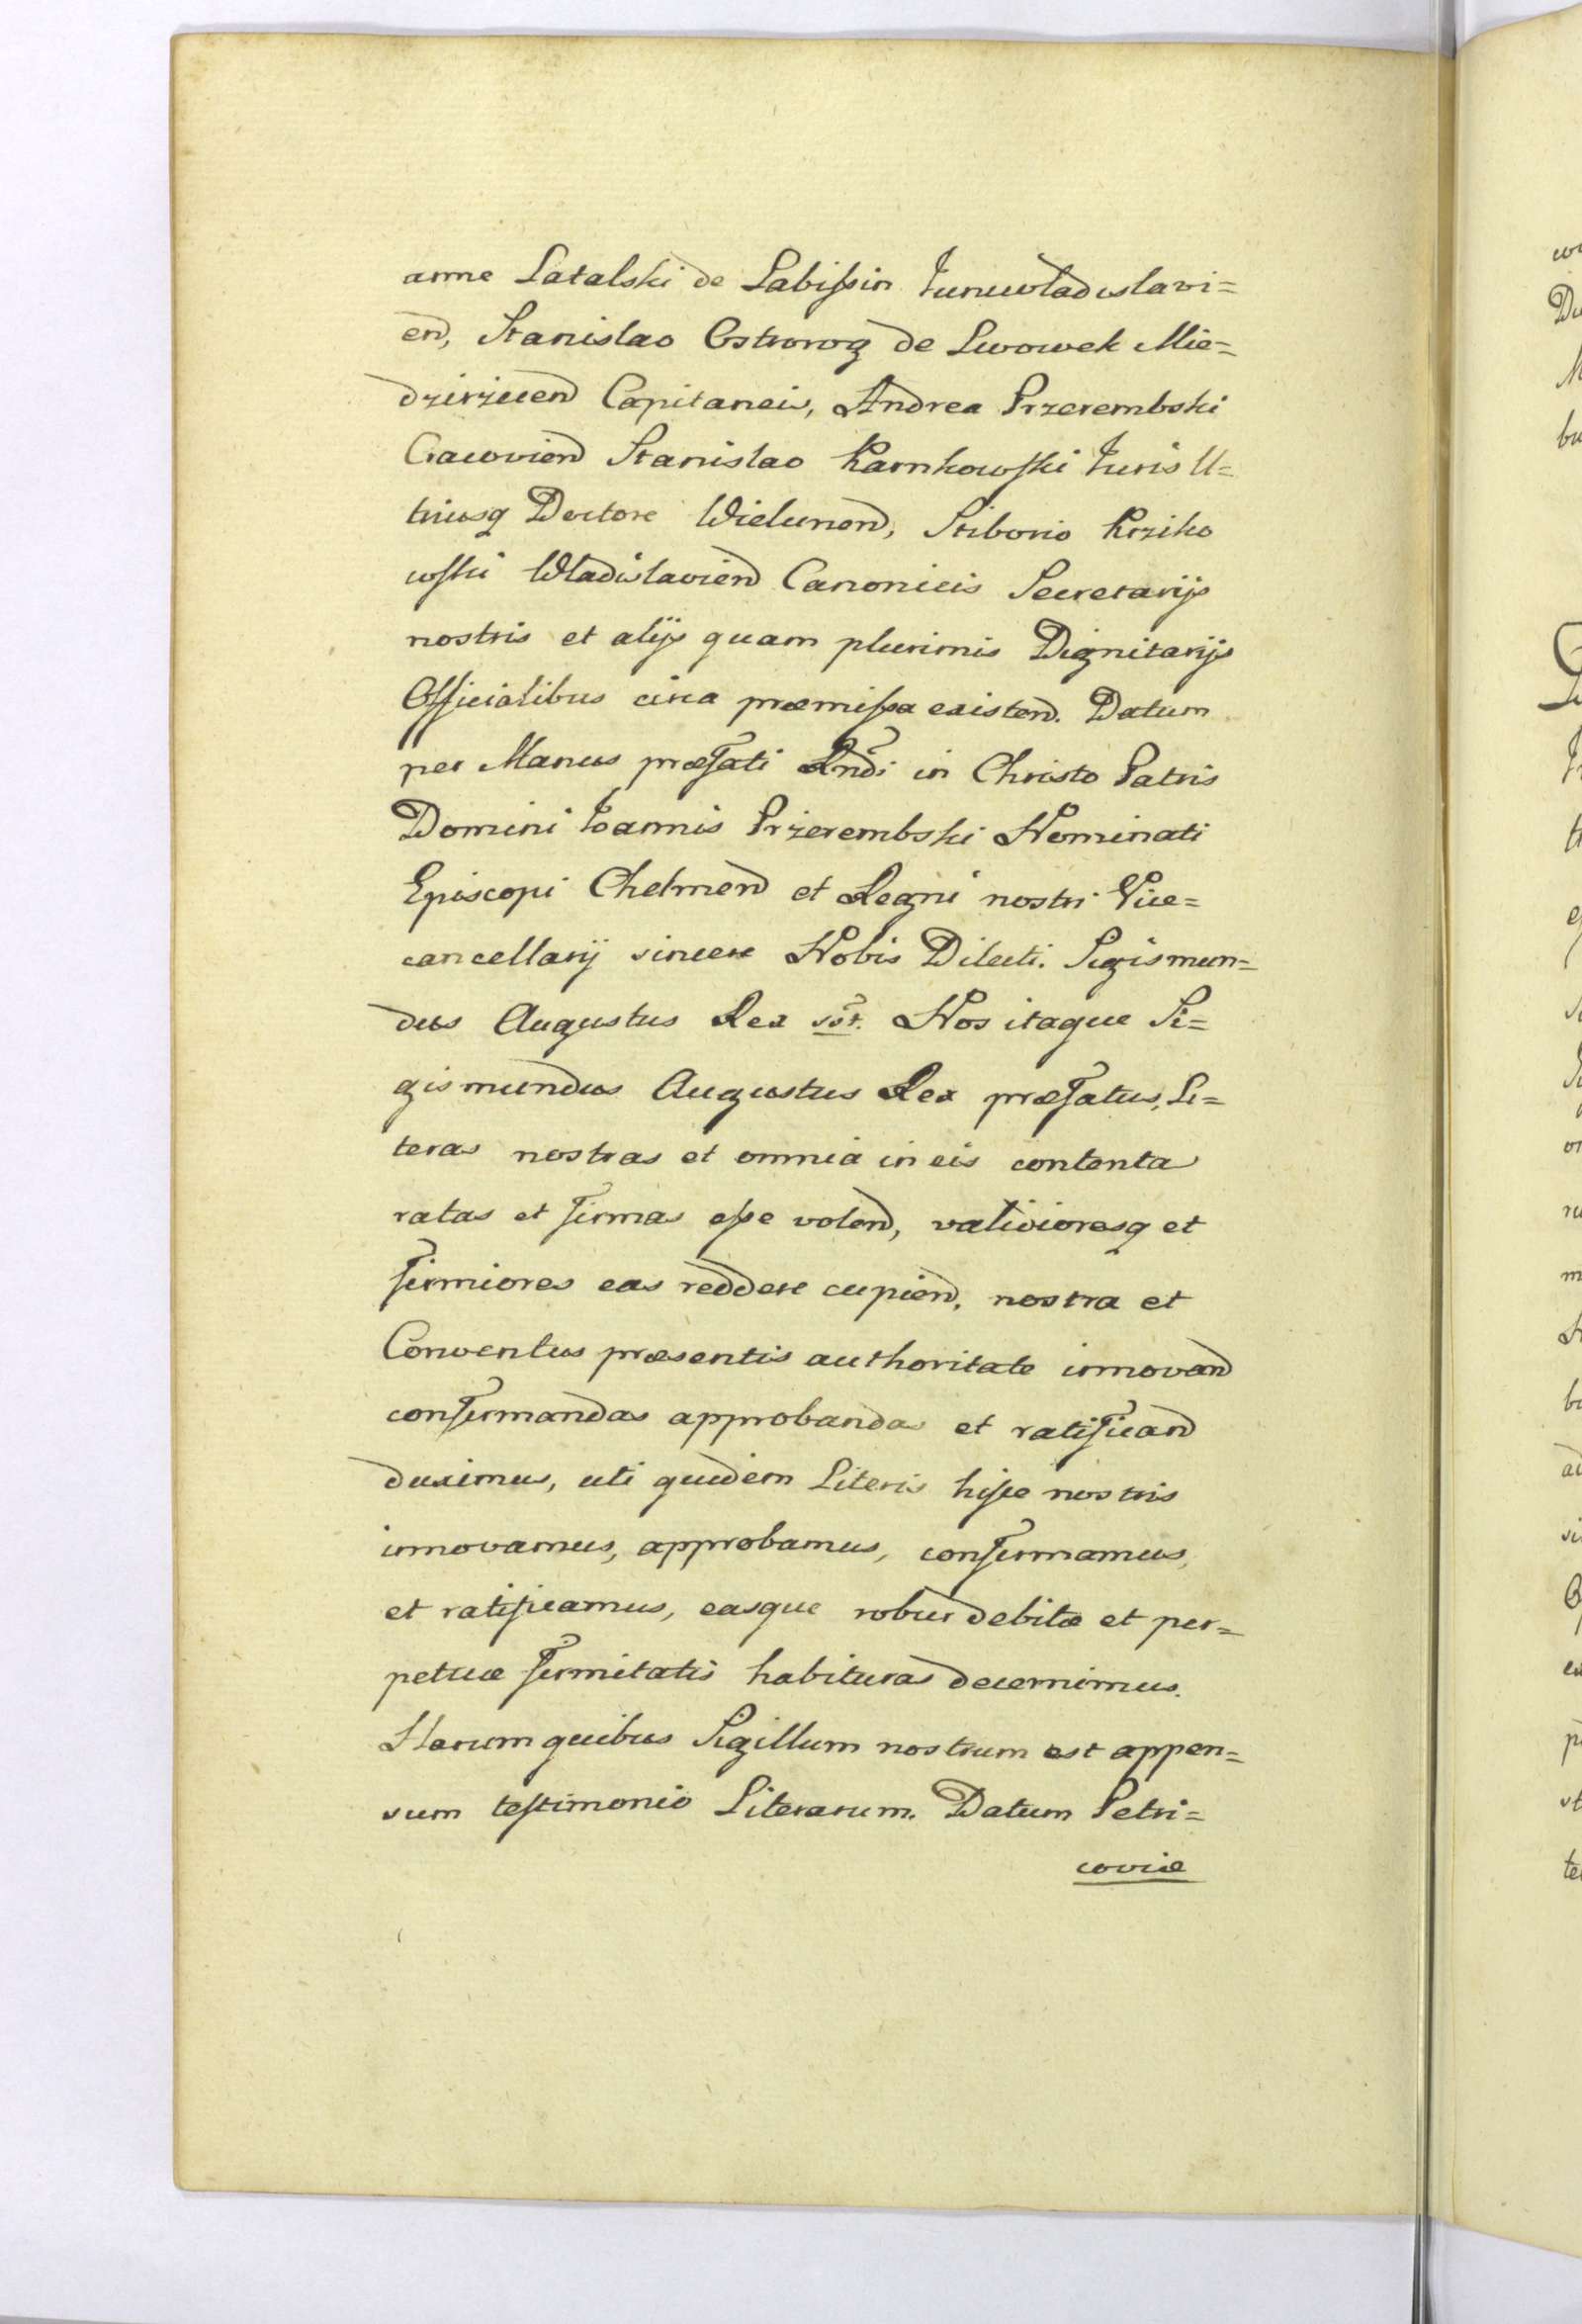 anne Latalski de Labissin Iunuwladislavi=
end, Stanislao Ostrorog de Lwowek Mie=
dzirzicend Capitaneis, Andrea Przerembski
Cracoviend Stanislao Karnkowski Iuris U=
triusq Doctore Wielunend, Stiborio Krziko
wski Wladislaviend Canonicis Secretarijs
nostris et alijs quam plurimis Dignitarijs
Officialibus circa præmissa existend. Datum
per Manus præfati Rndi in Christo Patris
Domini Ioannis Przerembski Nominati
Episcopi Chelmend et Regni nostri Vice=
cancellarij sincere Nobis Dilecti. Sigismun=
dus Augustus Rex sst. Nos itaque Si=
gismundus Augustus Rex præfatus, Li=
teras nostras et omnia in eis contenta
ratas et firmas esse volend, validioresq et
firmiores eas reddere cupiend, nostra et
Conventus præsentis authoritate innovand
confirmandas approbandas et ratificand
duximus, uti quidem Literis hisce nostris
innovamus, approbamus, confirmamus,
et ratificamus, easque robur debitæ et per=
petuæ firmitatis habituras decernimus.
Harum quibus Sigillum nostrum est appen=
sum testimonio Literarum. Datum Petri=
coviæ